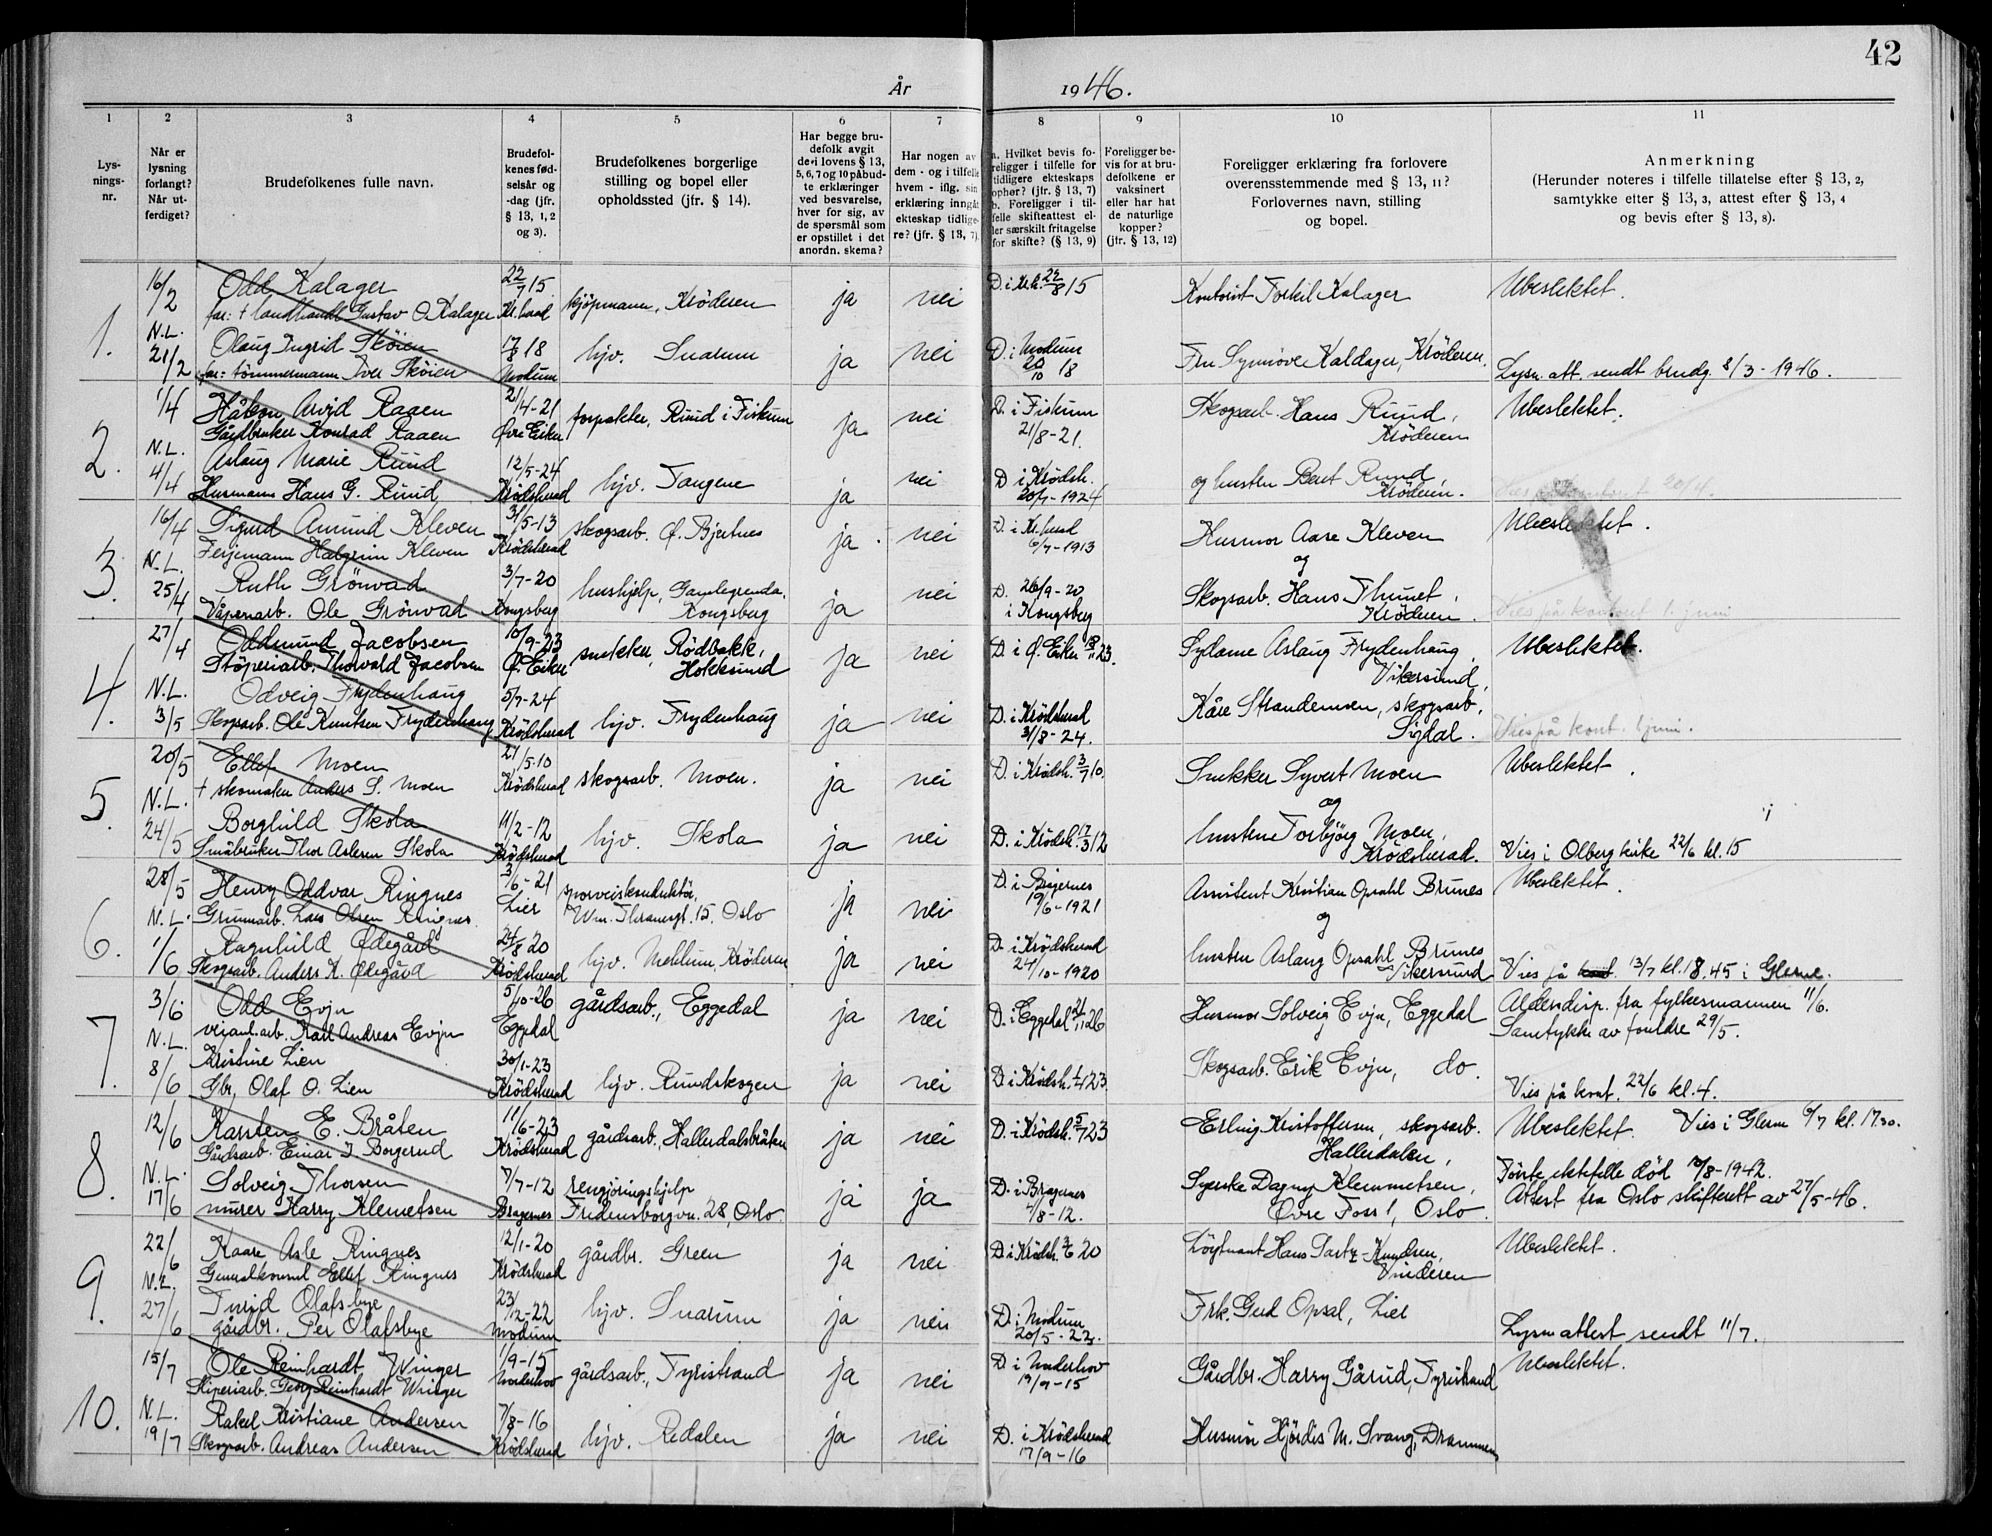 42
År 1946.
1 2 3 4 5 6 7 8 9 10 11
Lys-
nings-
nr.
Når er
lysning
forlangt?
Når ut-
ferdiget?
Brudefolkenes fulle navn.
Brudefol-
kenes fød-
selsår og
-dag (jfr.
§ 13, 1, 2
og 3).
Brudefolkenes borgerlige
stilling og bopel eller
opholdssted (jfr. § 14).
Har begge bru-
defolk avgit
de i lovens § 13,
5, 6, 7 og 10 påbud-
te erklæringer
ved besvarelse,
hver for sig, av
de spørsmål som
er opstillet i det
anordn. skema?
Har nogen av
dem - og i tilfelle
hvem - iflg. sin
erklæring inngåt
ekteskap tidlige-
re? (jfr. § 13, 7)
a. Hvilket bevis fo-
religger i tilfelle for
tidligere ekteskaps
ophør? (jfr. § 13, 7)
b. Foreligger i til-
felle skifteattest el-
ler særskilt fritagelse
for skifte? (§ 13, 9)
Foreligger be-
vis for at bru-
defolkene er
vaksinert
eller har hat
de naturlige
kopper?
(jfr. § 13, 12)
Foreligger erklæring fra forlovere
overensstemmende med § 13, 11?
Forlovernes navn, stilling
og bopel.
Anmerkning
(Herunder noteres i tilfelle tillatelse efter § 13, 2,
samtykke efter § 13, 3, attest efter § 13, 4
og bevis efter § 13, 8).
1. 16/2 Odd Kalager 22/7 15 kjöpmann, Kröderen ja nei D. i Kr.h. 22/8 15 Kontorist Torkil Kalager Ubeslektet.
far: † landhandl. Gustav O. Kalager Kr.herad
N.L. Olaug Ingrid Sköien 17/8 18 hjv. Snarum ja nei D. i Modum Fru Synnöve Kaldager, Kröderen.
21/2 far: tömmermann Iver Sköien Modum 20/10 18 Lysn. att. sendt brudg. 8/3 - 1946.
2. 1/4 Håkon Arvid Raaen 21/4-21 forpakter, Ruud i Fiskum ja nei D. i Fiskum Skogsarb. Hans Ruud, Ubeslektet.
Gårdbruker Konrad Raaen Övre Eiker 21/8-21. Kröderen
N.L. Aslaug Marie Ruud 12/5-24 hjv. Tangene ja nei D i Krödsh. og hustru Berit Ruud,
4/4 Husmann Hans G. Ruud Krödsherad 20/7-1924 Kröderen. 20/4.
3. 16/4 Sigurd Amund Kleven 31/5-13 skogsarb. Ø. Bjertnes ja nei D. i Kr.herad Husmor Aase Kleven Ubeslektet.
N.L. Feijemann Halgrim Kleven Krödsherad 6/7-1913 og
Ruth Grönvad 3/7-20 hushjelp, Gamlegrenda, ja nei D. 26/9-20 Skogsarb. Hans Thunet,
25/4 Våpenarb. Ole Grönvad Kongsberg Kongsberg i Kongsberg Kröderen. Vies på kontoret 1. juni
4. 27/4 Oddmund Jacobsen 10/9-23 snekker, Rödbakk, ja nei D. i Ö. Eiker 18/11 23. Sydame Aslaug Frydenhaug, Ubeslektet.
Støperiarb. Thorvald Jacobsen Ö. Eiker Hokksund Vikersund,
N.L. Odveig Frydenhaug 5/7-24 hjv. Frydenhaug ja nei D. i Krödsherad Kåre Strandemoen, skogsarb.,
3/5 Skogsarb. Ole Knutsen Frydenhaug Krödsherad 31/8-24. Sigdal. Vies på kont. 1 juni.
5. 20/5 Ellef Moen 21/5-10 skogsarb. Moen. ja nei D. i Krödsh. 3/7 10. Snekker Syvert Moen Ubeslektet.
† skomaker Anders S. Moen Krödsherad og
N.L. Borghild Skola 11/2-12 hjv. Skola ja nei D. i Krödsh. 17/3 12 hustru Torbjörg Moen,
24/5 Småbruker Thor Aslesen Skola Krödsherad Krödsherad. Vies i Olberg kirke 22/6 kl. 15
6. 28/5 Henry Oddvar Ringnes 3/6-21 sporveiskonduktör, ja nei D. i Bragernes Assistent Kristian Opsahl Brunes Ubeslektet.
N.L. Grunnarb. Lars Olsen Ringnes Lier Wm. Thranesgt. 15. Oslo 19/6-1921 og
Ragnhild Ödegård 24/8 20 hjv. Mehlum, Kröderen ja nei D. i Krödsherad hustru Aslaug Opsahl Brunes
1/6 Skogsarb. Anders K. Ödegård Krödsherad 24/10-1920 Vikersund Vies på kont. 13/7 kl. 18.45 i Glesne.
7. 3/6 Odd Evju 5/10-26 gårdsarb., Eggedal ja nei D. i Eggedal 21/11 26 Husmor Solveig Evju, Eggedal Aldersdisp. fra fylkesmannen 11/6.
N.L. veianl.arb. Karl Andreas Evju Eggedal Samtykke av foreldre 29/5.
8/6 Kristine Lien 30/1-23 hjv. Ruudskogen ja nei D. i Krödsh. 1/4 23. Skogsarb. Erik Evju, do.
Gbr. Olaf O. Lien Krödsherad Vies på kont. 22/6 kl. 4.
8. 12/6 Karsten E. Bråten 11/6-23 gårdsarb. Hallerdalsbråten ja nei D. i Krödsh. 5/7 23 Erling Kristoffersen, skogsarb. Ubeslektet. Vies i Glesne 6/7 kl. 17.30.
Gårdsarb. Einar J. Borgerud Krödsherad Hallerdalen,
N.L. Solveig Thorsen 7/7-12 rengjöringshjelp ja ja D. i Bragernes Syerske Dagny Klemmetsen, Första ektefelle död 10/8-1942.
17/6 murer Harry Klemetsen Bragernes Fredensborgvn. 28, Oslo. 4/8-12. Övre Foss 1, Oslo. Attest fra Oslo skifterett av 27/5-46.
9. 22/6 Kaare Asle Ringnes 12/1-20 gårdbr. Green ja nei D. i Krödsh. 3/6 20 Löytnant Hans Sartz-Knudsen, Ubeslektet.
N.L. Generalkonsul Ellef Ringnes Krödsherad Vinderen
27/6 Turid Olafsbye 23/12-22 hjv. Snarum ja nei D. i Modum Frk. Gerd Opsal, Lier
gårdbr. Per Olafsbye Modum 20/5-23. Lysn. attest sendt 11/7.
10. 15/7 Ole Reinhardt Winger 1/9-15 gårdsarb., Tyristrand ja nei D. i Norderhov Gårdbr. Harry Gårud, Tyristrand Ubeslektet.
Sliperiarb. Georg Reinhardt Winger Norderhov 19/9-15
N.L. Rakel Kristiane Andersen 7/8-16 hjv. Redalen ja nei D. i Krödsherad Husmor Hjördis M. Svang, Drammen
19/7 Skogsarb. Andreas Andersen Krödsherad 17/9-16